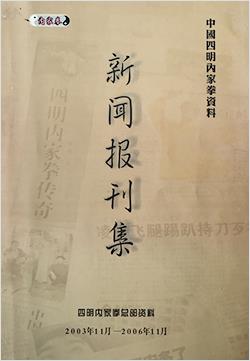 内家拳
中國四明内家拳資料
新闻报刊集
四明内家拳传奇
飞腿踢趴持刀歹
四明内家拳总部资料
2003年11月—2006年11月